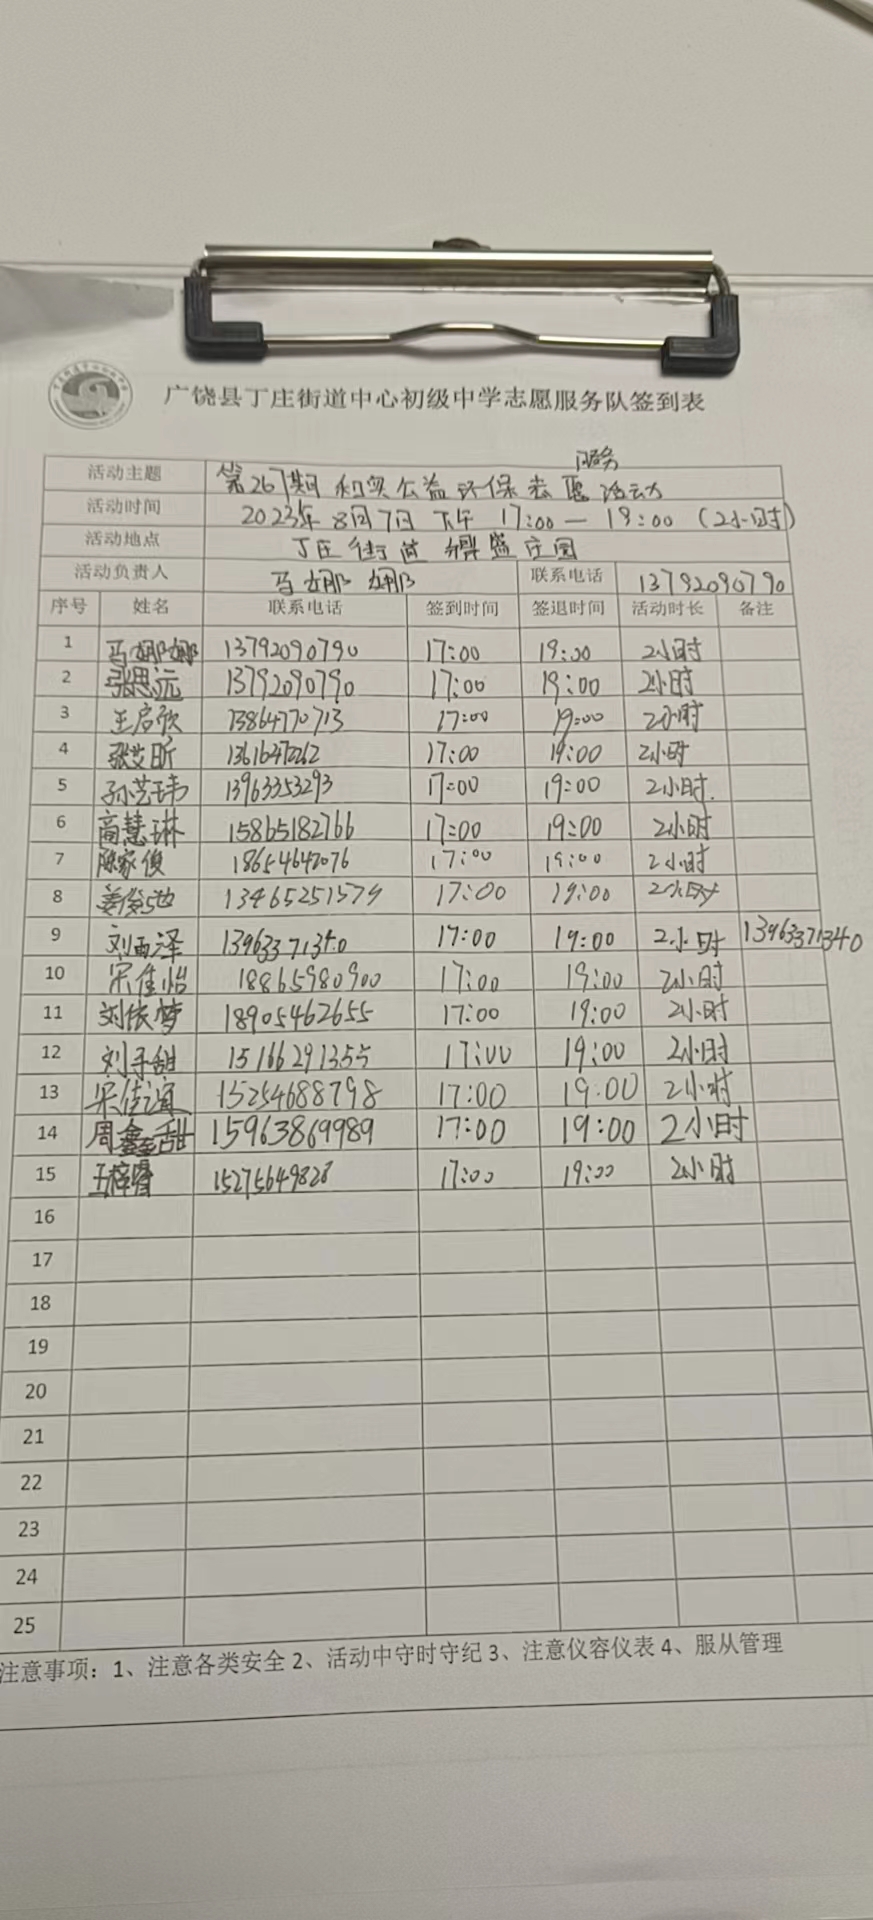 广饶县丁庄街道中心初级中学志愿服务队签到表
服务
活动主题 第267期 和实公益 环保志愿活动
活动时间 2023年8月7日 下午 17:00 — 19:00 (2小时)
活动地点 丁庄街道 盛庄园
活动负责人 马娜娜 联系电话 13792090790
序号 姓名 联系电话 签到时间 签退时间 活动时长 备注
1 马娜娜 13792090790 17:00 19:00 2小时
2 张思远 13792090790 17:00 19:00 2小时
3 王启欣 13864770713 17:00 19:00 2小时
4 张艾昕 17:00 19:00 2小时
5 孙艺玮 13963353293 17:00 19:00 2小时.
6 高慧琳 15865182766 17:00 19:00 2小时
7 陈家俊 18654642076 17:00 19:00 2小时
8 姜俊池 13465251579 17:00 19:00 2小时
9 刘雨泽 13963371340 17:00 19:00 2小时 13963371340
10 宋佳怡 18865980900 17:00 19:00 2小时
11 刘依梦 18905462655 17:00 19:00 2小时
12 刘子甜 15166291355 17:00 19:00 2小时
13 宋佳谊 15254688798 17:00 19:00 2小时
14 周鑫甜 15963869989 17:00 19:00 2小时
15 王梓睿 15275649828 17:00 19:00 2小时
16
17
18
19
20
21
22
23
24
25
注意事项：1、注意各类安全 2、活动中守时守纪 3、注意仪容仪表 4、服从管理